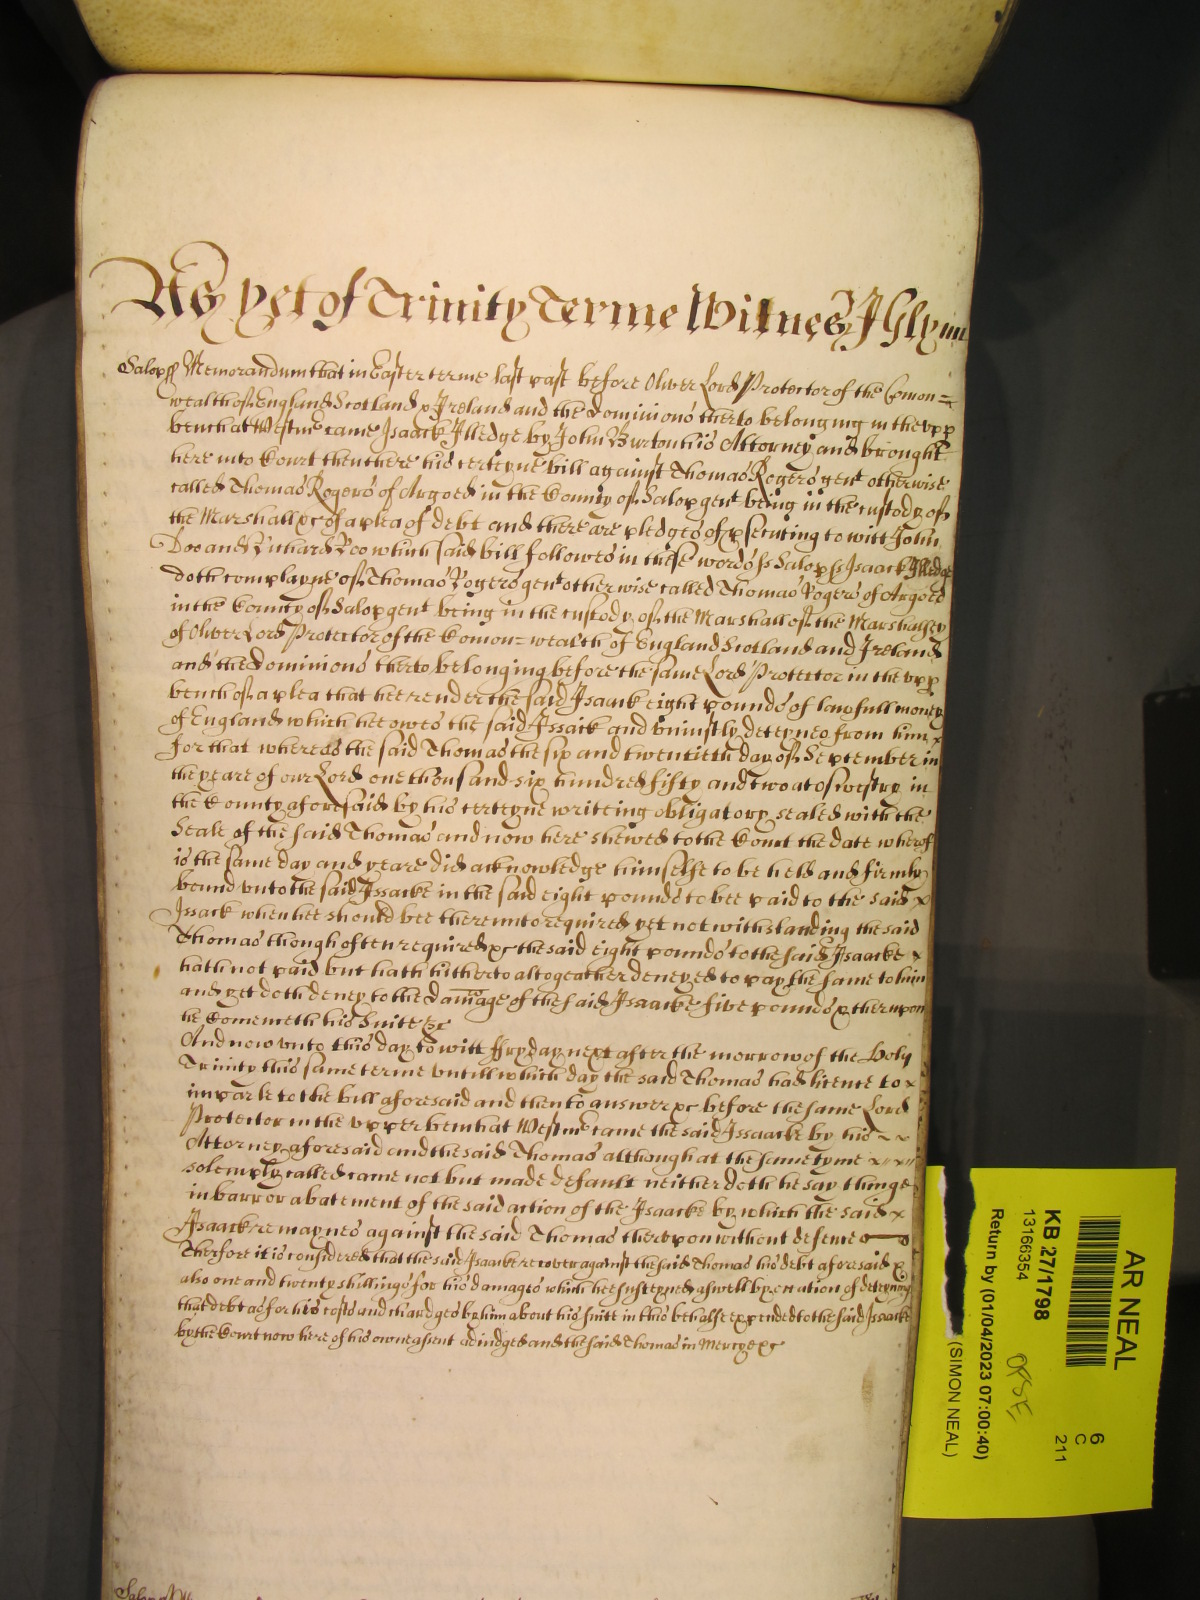 As yet of Trinity Terme Witnes J Glynn
Salop ss Memorandum that in Easter terme last past before Oliver Lord Protector of the Comon =
wealth of England Scotland & Ireland and the dominions therto belonging in the upp
bench at Westmr came Isaack Illedge by John Burton his Attorney and brought
here into Court then there his certeyne bill against Thomas Rogers gent otherwise
called Thomas Rogers of Argoed in the County of Salop gent being in the custody of
the Marshall &c of a plea of debt and there are pledges of psecuting to witt John
Doo and Richard Roo which said bill followes in these words ss Salop ss Isaack Illedge
doth complayne of Thomas Rogers gent otherwise called Thomas Rogers of Argoed
in the County of Salop gent being in the custody of the Marshall of the Marshalsey
of Oliver Lord Protector of the Comon = wealth of England Scotland and Ireland
and the dominions therto belonging before the same Lord Protector in the upp
bench of a plea that hee render the said Isaack eight pounds of lawfull money
of England which hee owes the said Issack and uniustly deteynes from him x
for that whereas the said Thomas the six and twentieth day of September in
the yeare of our Lord one thousand six hundred fifty and two at Oswestry in
the County aforesaid by his certeyne writting obligatory sealed with the
Seale of the said Thomas and now here shewed to the Court the date wherof
is the same day and yeare did acknowledge himselfe to be held and firmly
bound unto the said Issacke in the said eight pounds to bee paid to the said x
Issack when hee should bee thereunto required yet notwithstanding the said
Thomas though often required &c the said eight pounds to the said Isaacke x
hath not paid but hath hitherto altogeather denyed to pay the same to him
and yet doth deney to the damage of the said Isaacke five pounds & therupon
he
And now unto this day to witt ffryday next after the morrow of the Holy
Trinity this same terme untill which day the said Thomas had licence to x
imparle to the bill aforesaid and then to answer &c before the same Lord
Protector in the upper bench at Westmr came the said Issaacke by his ~ ~
Attorney aforesaid and the said Thomas although at the same tyme x x x
solemply called came not but made default neither doth he say thinge
in barr or abatement of the said action of the Isaacke by which the said x
Isaack remaynes against the said Thomas therupon without defence
Therfore it is considered that the said Isaacke recover against the said Thomas his debt aforesaid &
also one and twenty shillings for his damages which hee susteyned aswell by occation of deteyning
that debt as for his costs and chardges by him about his suite in this behalfe expended to the said Issacke
by the Court now here of his owne assent adiudged and the said Thomas in Mercy &c
AR NEAL
6
C
211
KB 27/1798
13166354
Return by (01/04/2023 07:00:40)
(SIMON NEAL)